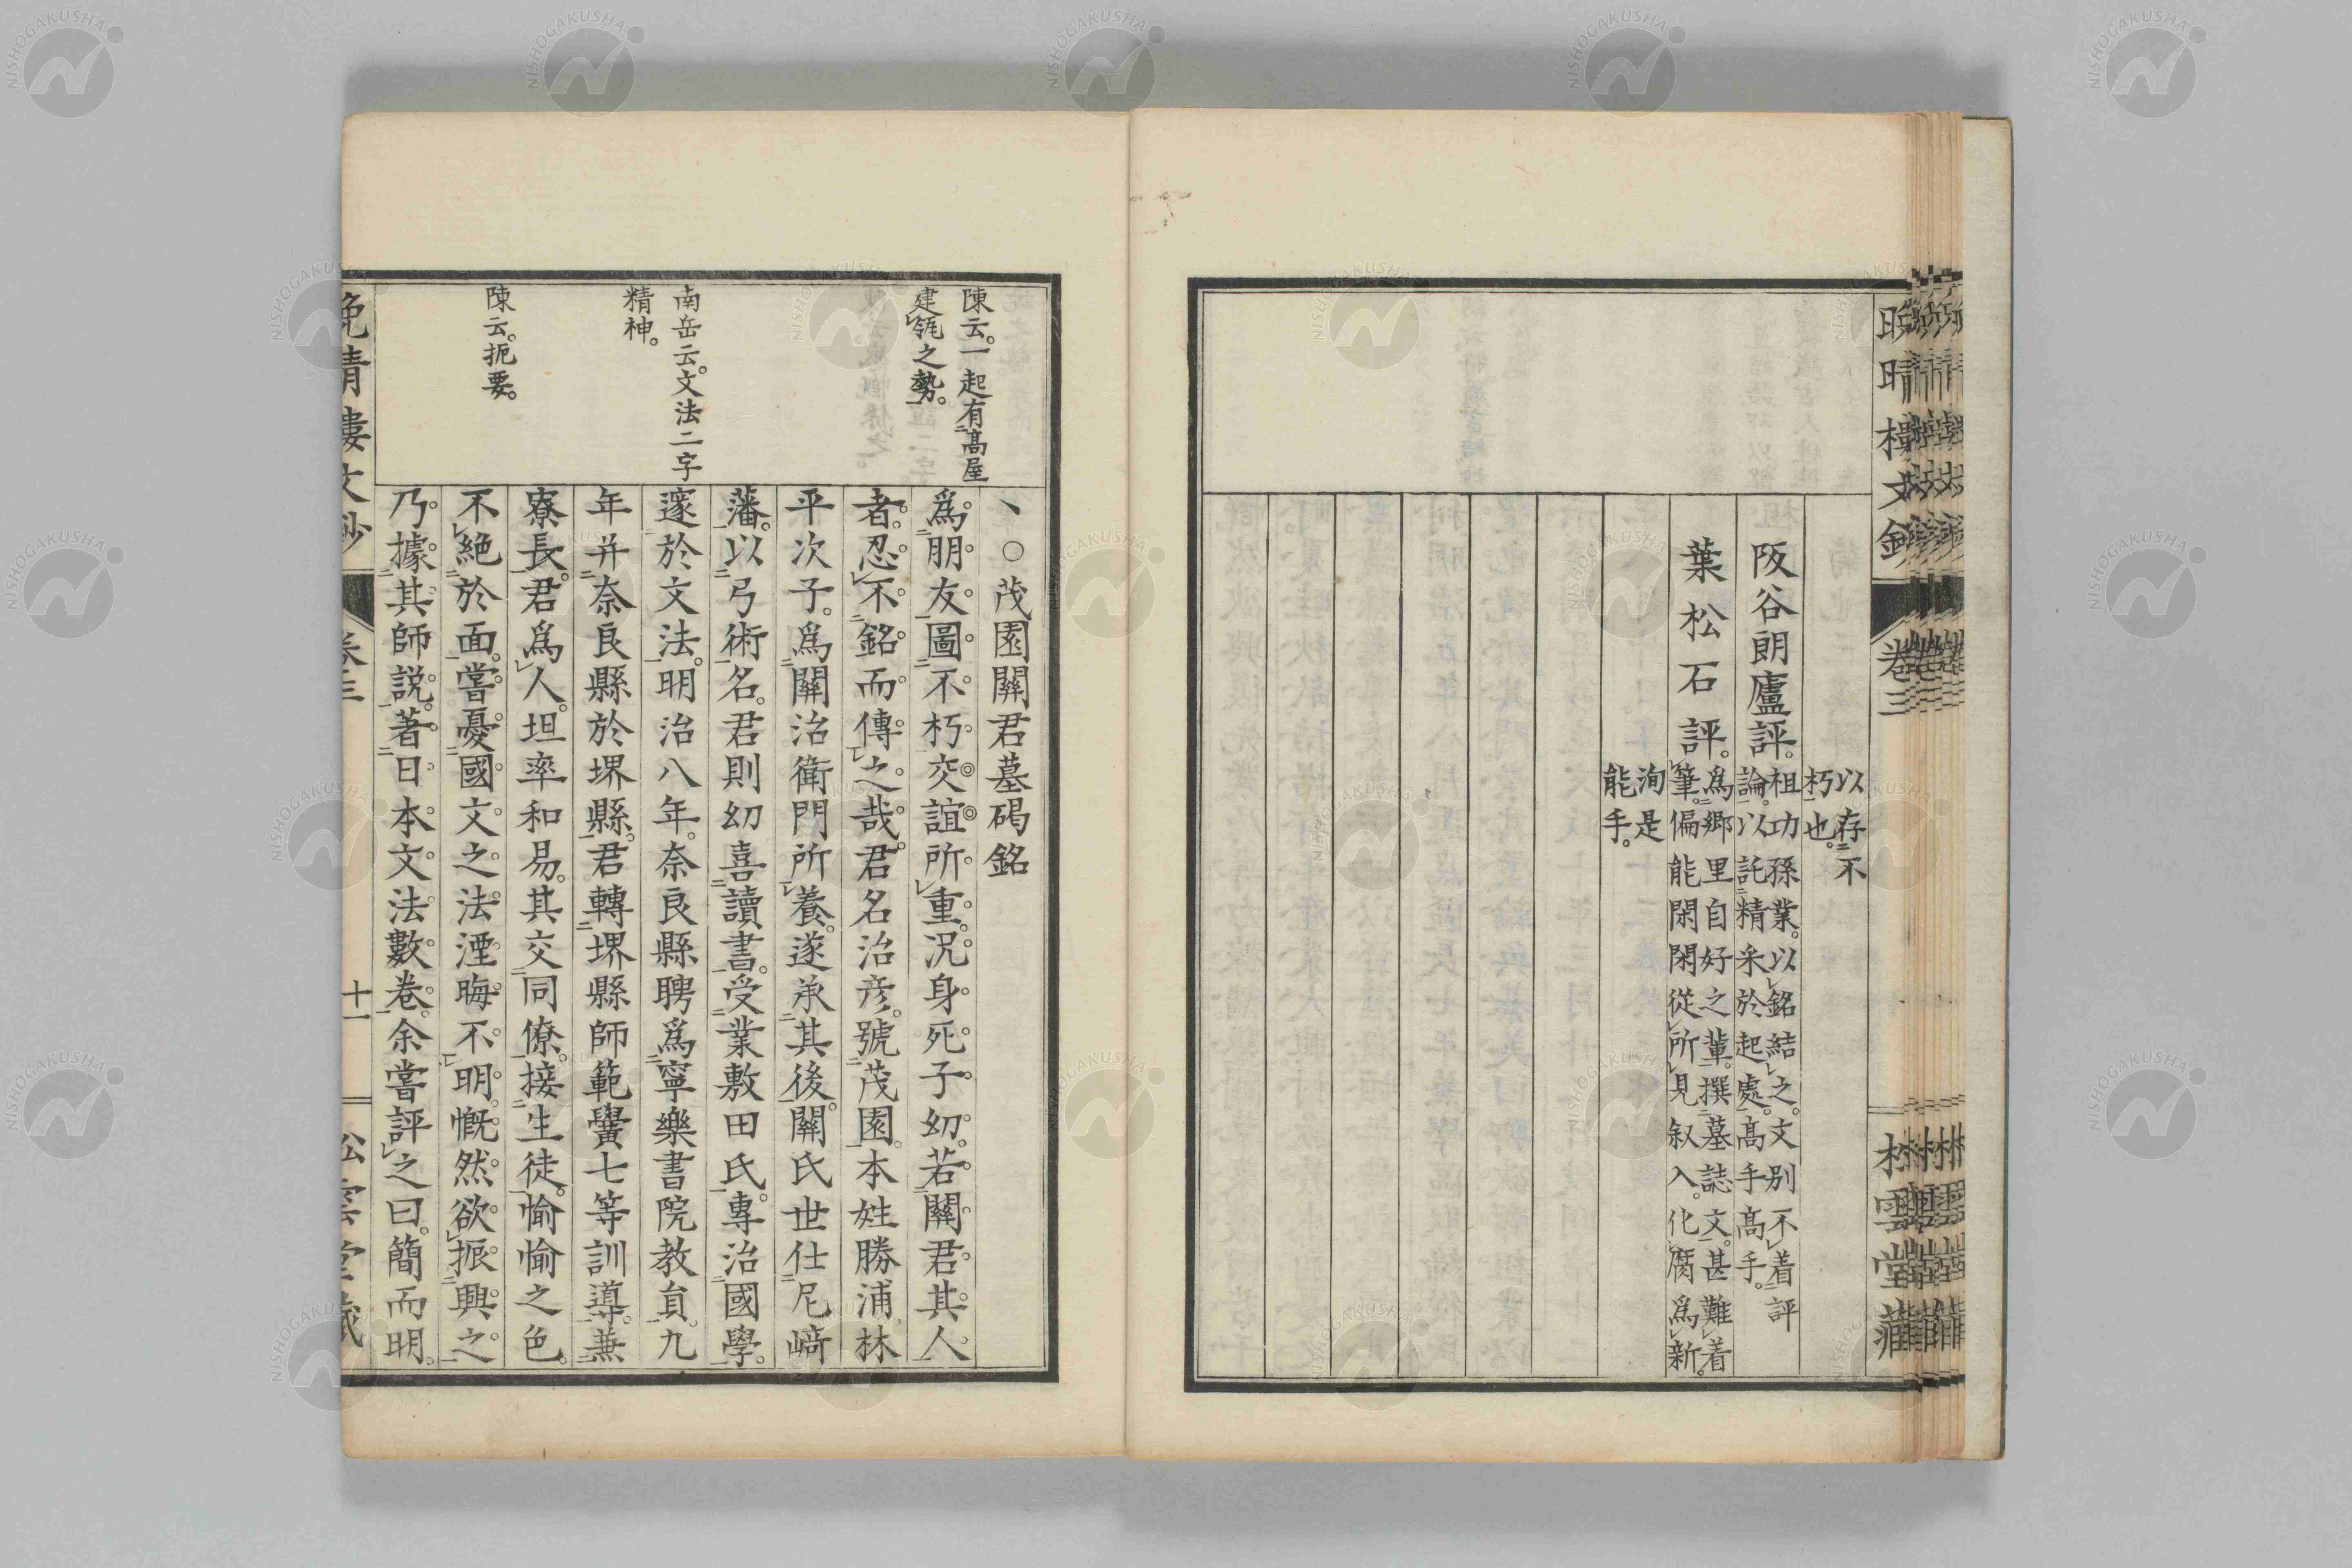 晚晴樓文鈔
卷三
松雲堂藏
以存不
朽也。
阪谷朗廬評。祖功孫業。以銘結之。文別不着評
論。以託精采於起處。高手高手。
葉松石評。爲鄉里自好之輩。撰墓誌文。甚難着
筆。偏能閑閑從所見叙入。化腐爲新。
洵是
能手。
陳云。一起有高屋
建瓴之勢。
南岳云。文法二字
精神。
陳云。扼要。
、○茂園關君墓碣銘
爲朋友圖不朽。交誼所重。況身死子幼。若關君其人
者。忍不銘而傳之哉。君名治彥。號茂園。本姓勝浦林
平次子。爲關治衛門所養。遂承其後。關氏世仕尼﨑
藩。以弓術名。君則幼喜讀書。受業敷田氏。專治國學。
邃於文法。明治八年。奈良縣聘爲寧樂書院教員。九
年并奈良縣於堺縣。君轉堺縣師範黌七等訓導。兼
寮長。君爲人。坦率和易。其交同僚。接生徒。愉愉之色。
不絕於面。嘗憂國文之法湮晦不明。慨然欲振興之。
乃據其師說。著日本文法數卷。余嘗評之曰。簡而明。
晚晴樓文鈔
卷三
十一
松雲堂藏